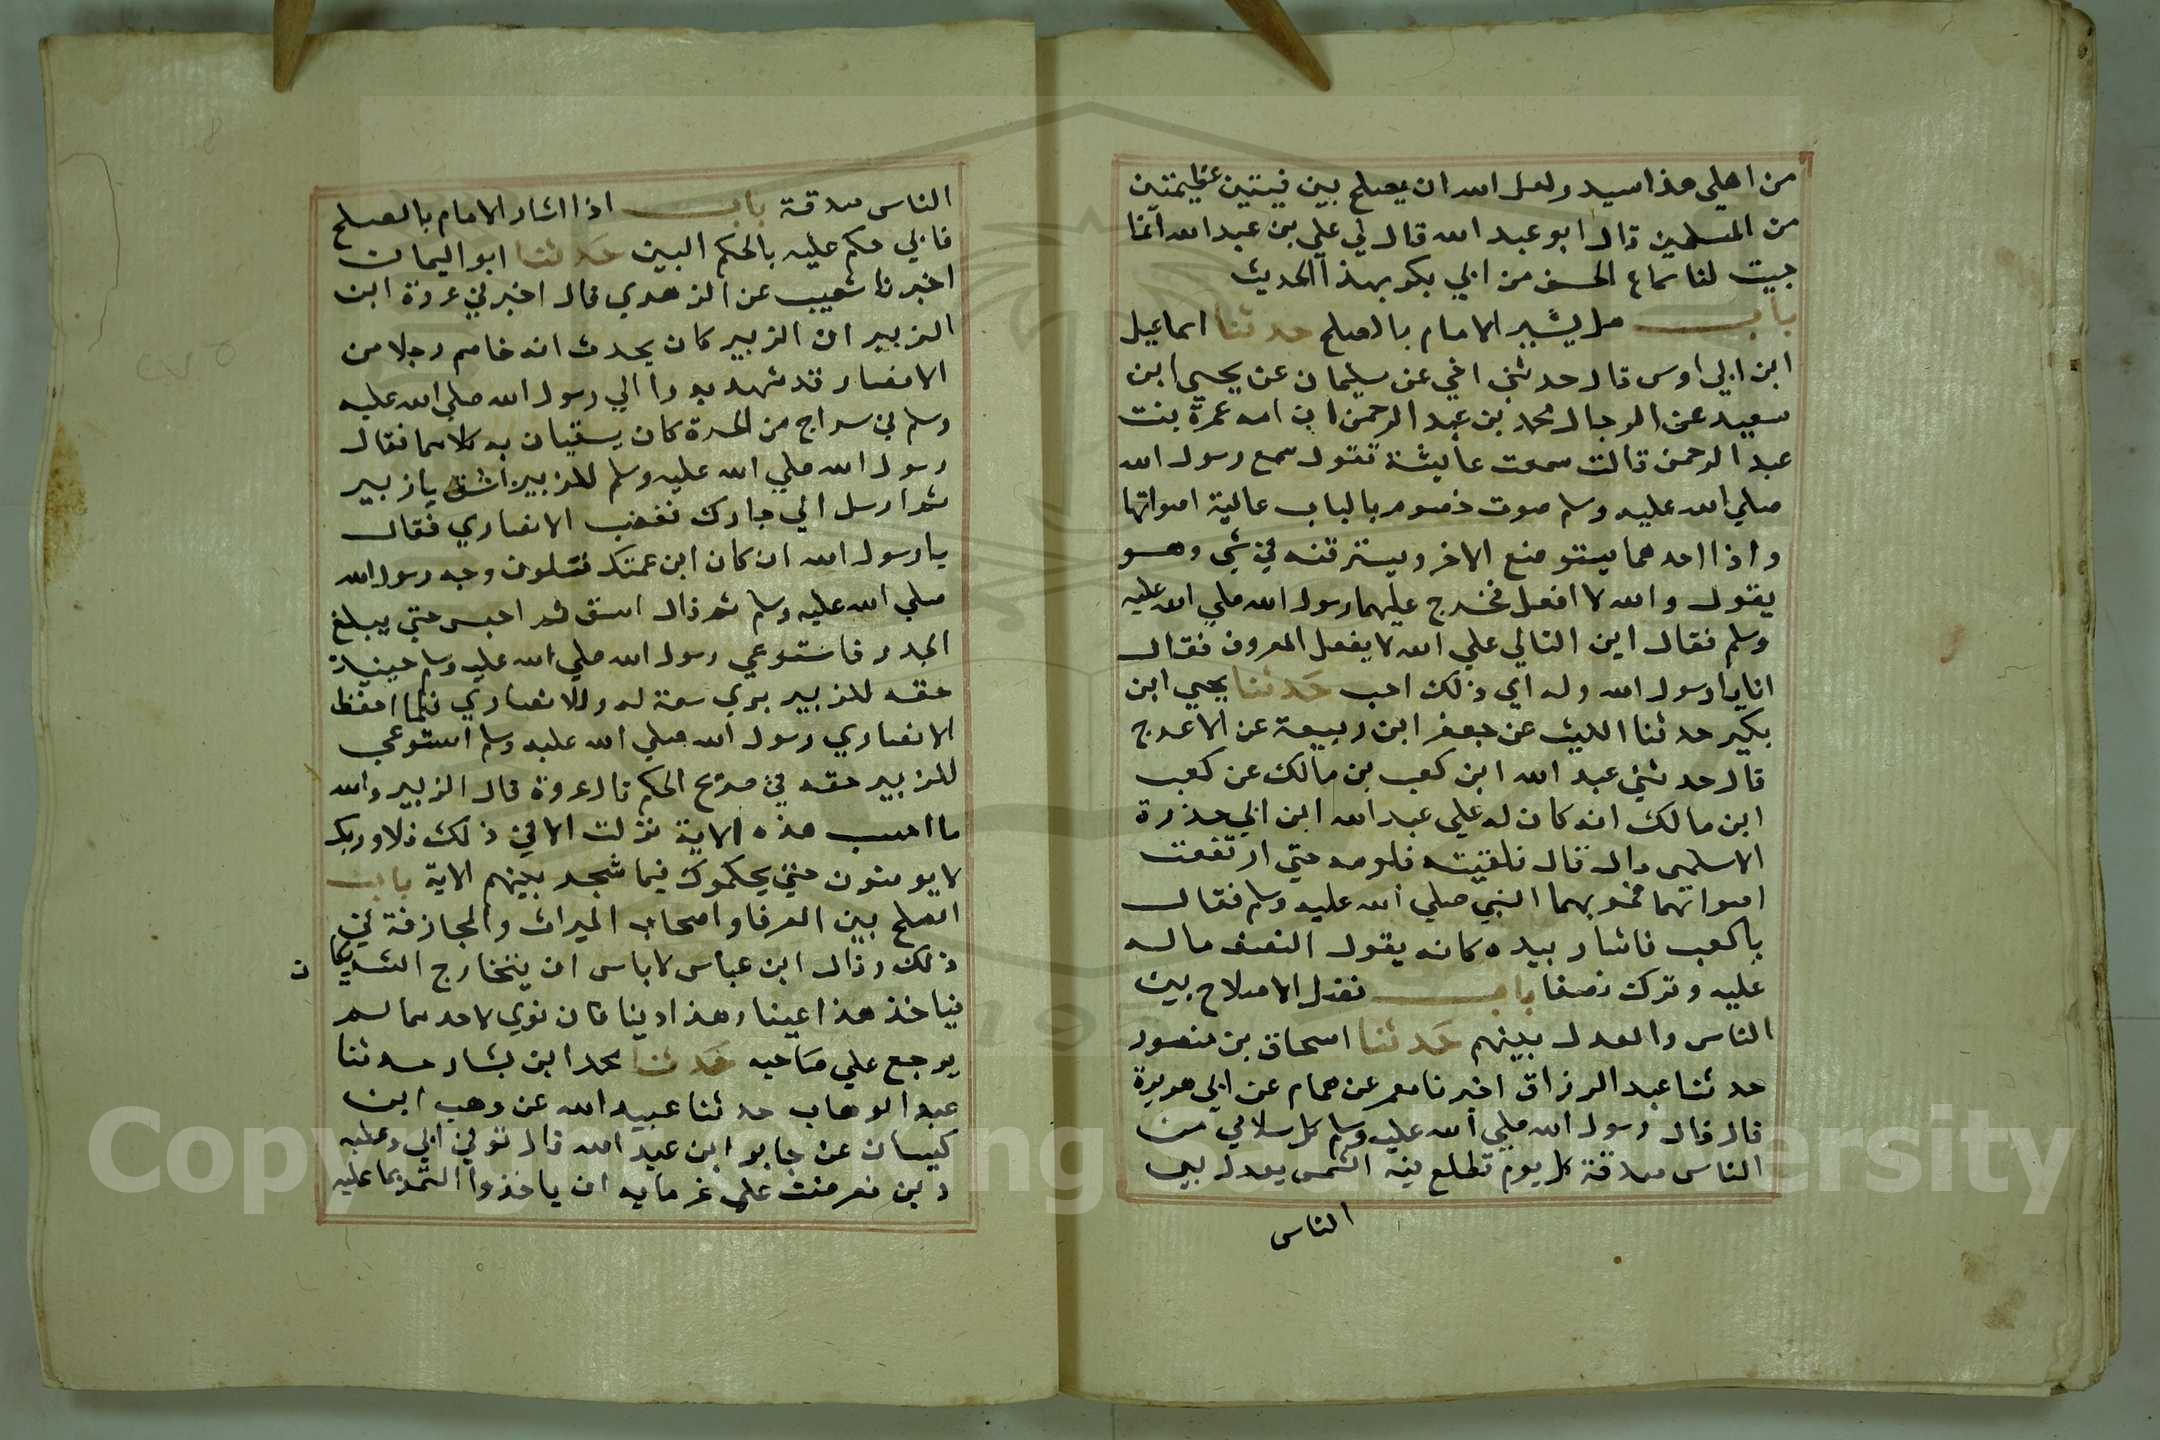 من اهلي هذا سيد ولعل الله ان يصلح بين فيتين عظيمتين
من المسلمين قال ابو عبد الله قال لي علي بن عبد الله انما
جيت لنا سماع الحسن من ابي بكر بهذا الحديث
باب هل يشير الامام بالصلح حدثنا اسماعيل
ابن ابي اوس قال حدثني اخي عن سليمان عن يحيي ابن
سعيد عن الرجال محمد بن عبد الرحمن ان امه عمرة بنت
عبد الرحمن قالت سمعت عايشة تقول سمع رسول الله
صلي الله عليه وسلم صوت خصوم بالباب عالية اصواتها
واذا احدهما يستوضع الاخر ويسترقنه في شي وهو
يقول والله لا افعل فخرج عليهما رسول الله صلي الله عليه
وسلم فقال اين التالي علي الله لا يفعل المعروف فقال
انا يا رسول الله وله اي ذلك احب حدثنا يحيي ابن
بكير حدثنا الليث عن جعفر ابن ربيعة عن الاعرج
قال حدثني عبد الله ابن كعب بن مالك عن كعب
ابن مالك انه كان له علي عبد الله ابن ابي حذرة
الاسلمي مال قال فلقيته فلزمه حتي ارتفعت
اصواتهما فمر بهما النبي صلي الله عليه وسلم فقال
يا كعب فاشار بيده كانه يقول النصف ما له
عليه وترك نصفا باب فضل الاصلاح بين
الناس والعدل بينهم حدثنا اسحاق بن منصور
حدثنا عبد الرزاق اخبرنا معمر عن همام عن ابي هريرة
قال قال رسول الله صلي الله عليه وسلم كل سلامي من
الناس صدقة كل يوم تطلع فيه الشمس يعدل بين
الناس
الناس صدقة باب اذا اشار الامام بالصلح
فابي حكم عليه بالحكم البين حدثنا ابو اليمان
اخبرنا شعيب عن الزهري قال اخبرني عروة ابن
الزبير ان الزبير كان يحدث انه خاصم رجلا من
الانصار قد شهد بدرا الي رسول الله صلي الله عليه
وسلم في سراج من الحرة كان يسقيان به كلاهما فقال
رسول الله صلي الله عليه وسلم للزبير اشق يا زبير
ثم ارسل الي جارك فغضب الانصاري فقال
يا رسول الله ان كان ابن عمتك فتلون وجه رسول الله
صلي الله عليه وسلم ثم قال اسق ثم احبس حتي يبلغ
الجدر فاستوعي رسول الله صلي الله عليه وسلم حينيذ
حقه للزبير بري سعة له وللانصاري فلما احفظ
الانصاري رسول الله صلي الله عليه وسلم استوعي
للزبير حقه في صريح الحكم قال عروة قال الزبير والله
ما احسب هذه الاية نزلت الا في ذلك فلا وربك
لا يومنون حتي يحكموك فيما شجر بينهم الاية باب
الصلح بين الغرفا واصحاب الميراث والمجازفة في
ذلك وقال ابن عباس لا باس ان يتخارج الشريكا
ن
فياخذ هذا عينا وهذا دينا فان نوي لاحدهما لم
يرجع علي صاحبه حدثنا محمد ابن بشار حدثنا
عبد الوهاب حدثنا عبيد الله عن وهب ابن
كيسان عن جابر ابن عبد الله قال توفي ابي وعليه
دين فعرضت علي غرمايه ان ياخذوا التمر بما عليه